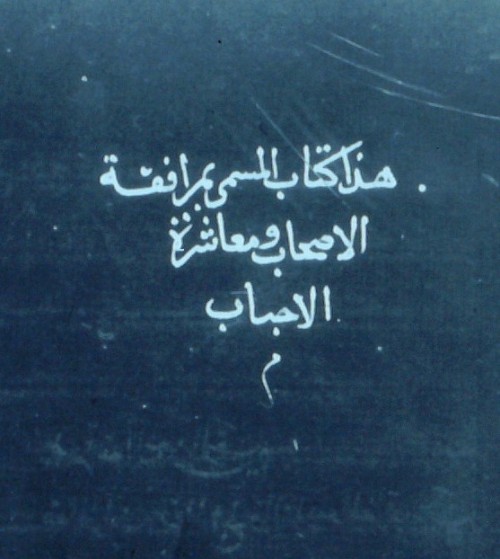 هذا كتاب المسمى بمرافقة
الاصحاب ومعاشرة
الاحباب
م